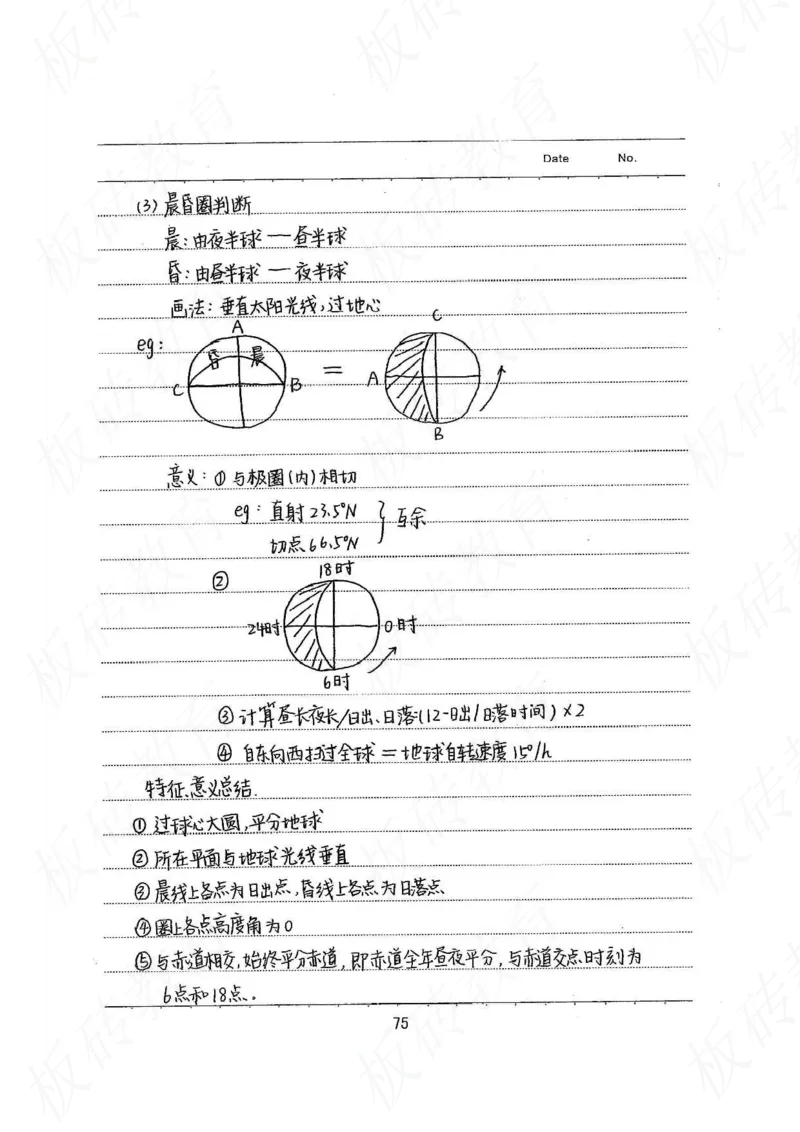 Date No.
(3) 晨昏圈判断
晨：由夜半球 — 昼半球
昏：由昼半球 — 夜半球
画法：垂直太阳光线，过地心
eg：
A
昏 晨
C B
=
C
A
B
意义：① 与极圈(内)相切
eg：直射23.5°N
切点66.5°N
} 互余
②
18时
24时 0时
6时
③ 计算昼长夜长/日出、日落(12-日出/日落时间)×2
④ 自东向西扫过全球 = 地球自转速度15°/h
特征、意义总结.
① 过球心大圆，平分地球
② 所在平面与地球光线垂直
③ 晨线上各点为日出点，昏线上各点为日落点
④ 圈上各点高度角为0
⑤ 与赤道相交，始终平分赤道，即赤道全年昼夜平分，与赤道交点时刻为
6点和18点。
75
板砖教育